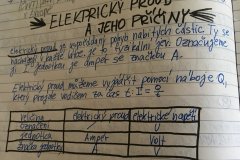 ELEKTRICKÝ PROUD
A JEHO PŘÍČINY
Elektrický proud je uspořádaný pohyb nabitých částic. Ty se
nacházejí v každé látce, ať je to tvrdá či Označujeme
I. Jednotkou je ampér se značkou A.
Elektrický proud můžeme vypočítat pomocí náboje Q,
který projde vodičem za čas t: I = Q/t
veličina elektrický proud elektrické napětí
označení I U
jednotka Ampér Volt
značka jednotky A V